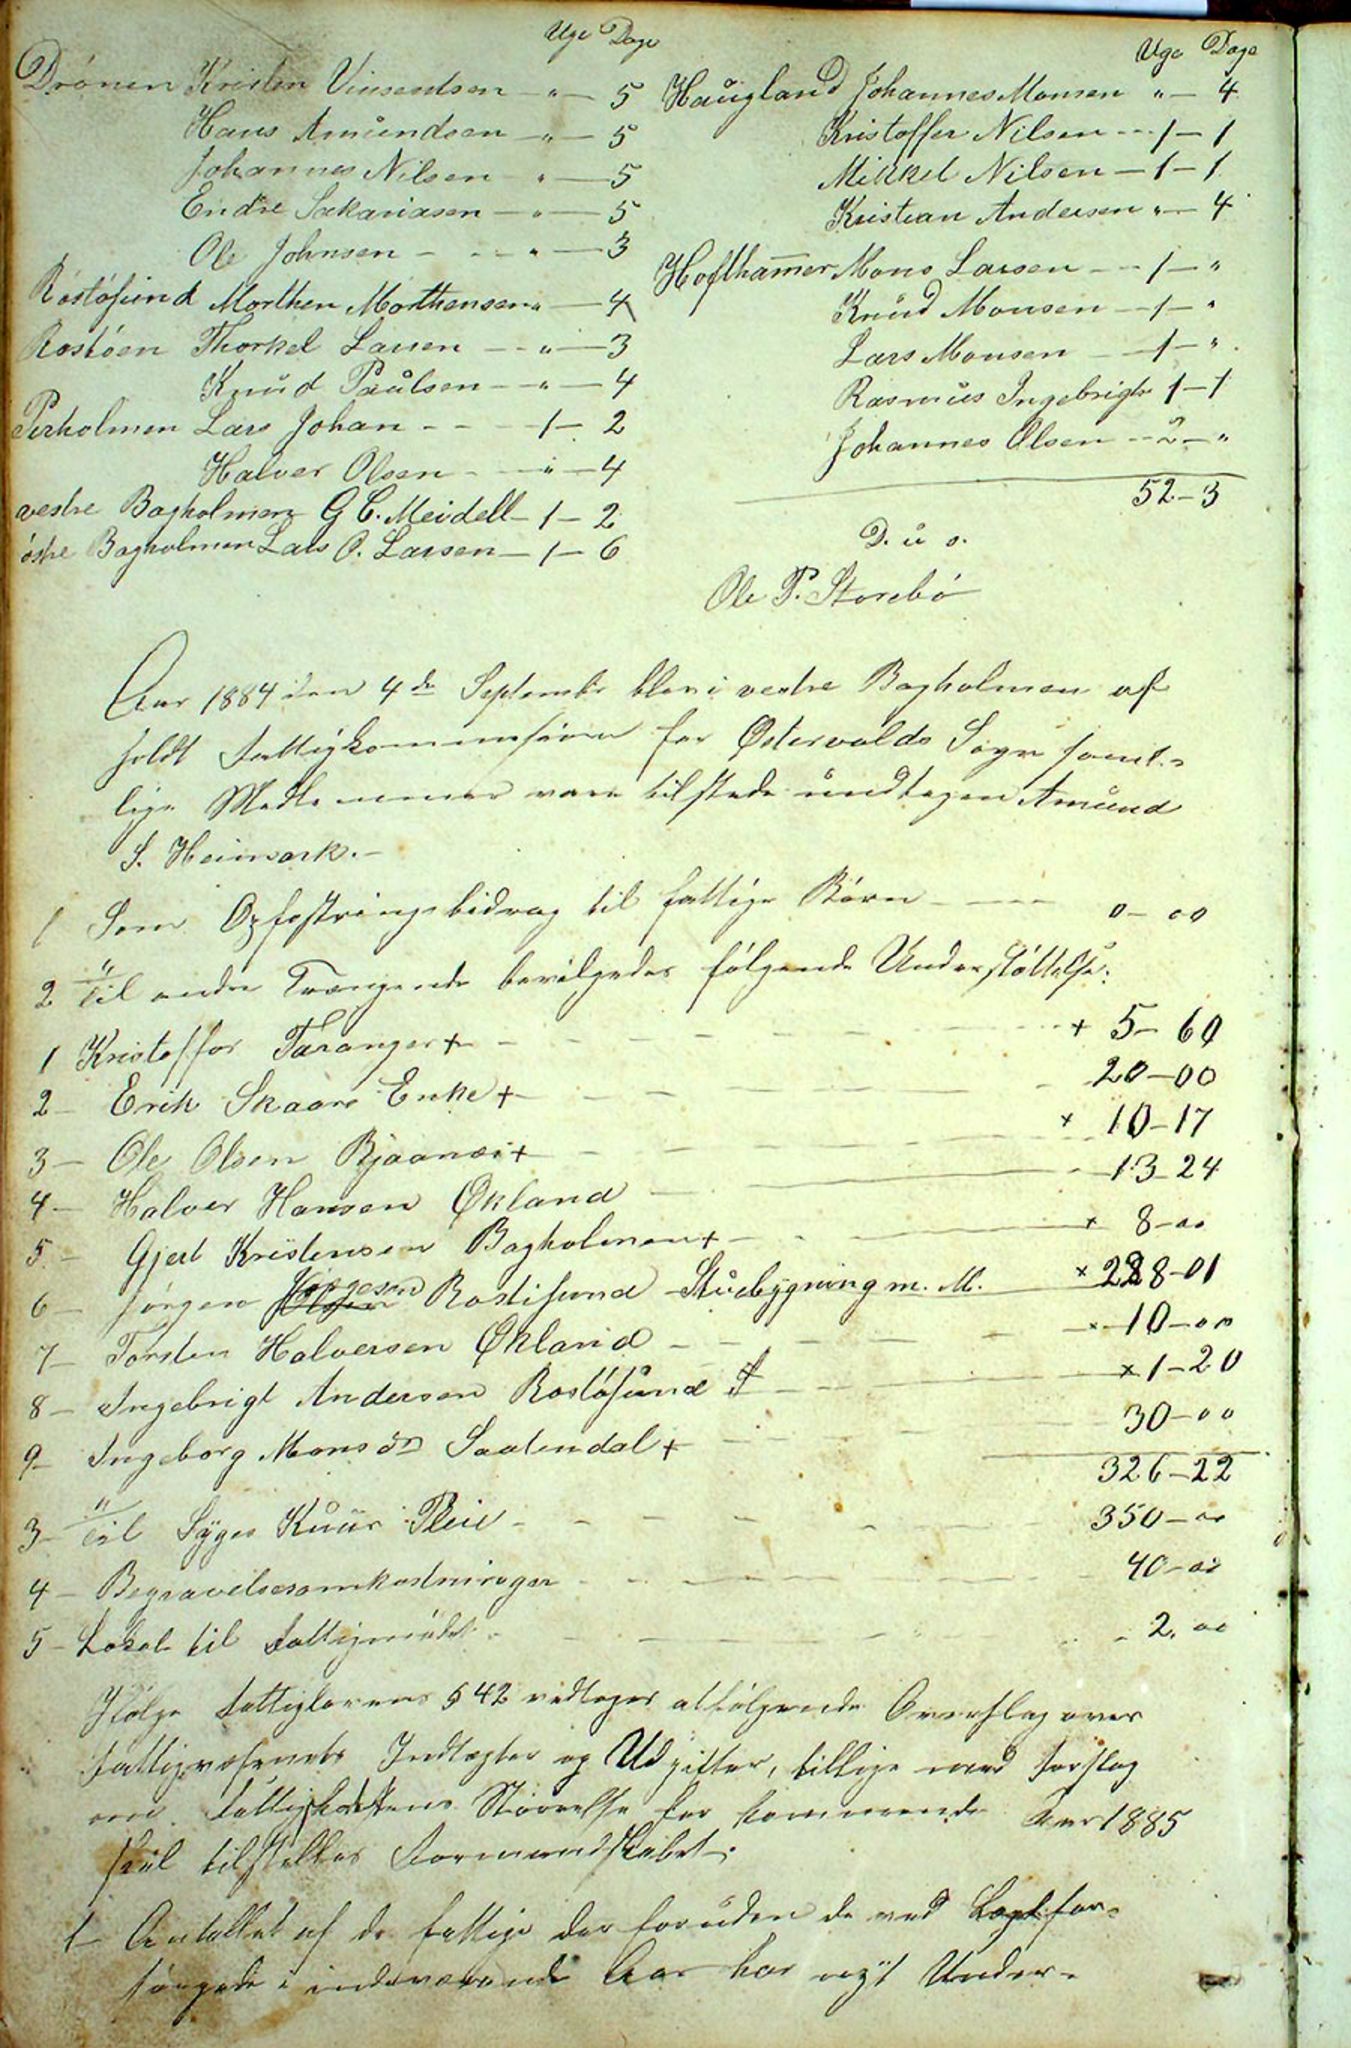 Uge Dage
Drönen Kristen Vinsendsen - " - 5
Hans Amundsen - " - 5
Johannes Nilsen " - 5
Endre Sakariasen - " - 5
Ole Johnsen - - - " - 3
Rostösund Morthen Morthensen " - 4
Rostöen Thorkel Larsen - - " - 3
Knud Paulsen - " - 4
Perholmen Lars Johan - - - 1 - 2
Halver Olsen - - " - 4
vestre Bagholmen G C. Meidell - 1 - 2
östre Bagholmen Lars O. Larsen - 1 - 6
Uge Dage
Haugland Johannes Monsen " - 4
Kristoffer Nilsen - - 1 - 1
Mikkel Nilsen - 1 - 1
Kristian Andersen " - 4
Hofthammer Mons Larsen - - 1 - "
Knud Monsen - 1 - "
Lars Monsen - - 1 - "
Rasmus Ingebrigts 1 - 1
Johannes Olsen - - 2 - "
52 - 3
D. u s.
Ole P. Storebö
Aar 1884 den 4de Septembr blev i vestre Bagholmen af
holdt Fattigkommission for Østervolds Sogn samt-
lige Medlemmer vare tilstede undtagen Amund
S. Heimark. -
1 Som Opfostringsbidrag til fattige Börn - - - 0 - 00
2 " Til andre Trængende bevilgedes fölgende Understöttelse:
1 Kristoffer Taranger + - - - + 5 - 60
2 - Erik Skaare Enke + - - - 20 - 00
3 - Ole Olsen Bjaanæs + - - - x 10 - 17
4 - Halver Hansen Økland - - 13 - 24
5 - Gjert Kristensen Bagholmen + - - x 8 - 00
6 - Jörgen Jörgesen Rostösund - Stuebygning m. M. x 288 - 01
7 - Torsten Halversen Økland - - - x 10 - 00
8 - Ingebrigt Andersen Rostösund + - - - x 1 - 20
9 - Ingeborg Mons Dr Saatendal + - - - 30 - 00
326 - 22
3 - " Til Syges Kuur Pleie - - - 350 - 00
4 - Begravelsesomkostninger - - - 40 - 00
5 - Lokale til Fattigmödet - - - 2. 00
Ifölge Fattiglovens § 42 vedtoges at fölgende Overslag over
Fattigvæsenets Indtægter og Udgifter, tillige med Forslag
om Fattigskattens Störrelse for kommende Aar 1885
skul tilstilles Formandskabet:
1 - Antallet af de fattige der foruden de ved Lægd for-
sörgede i indeværende Aar har nydt Under-